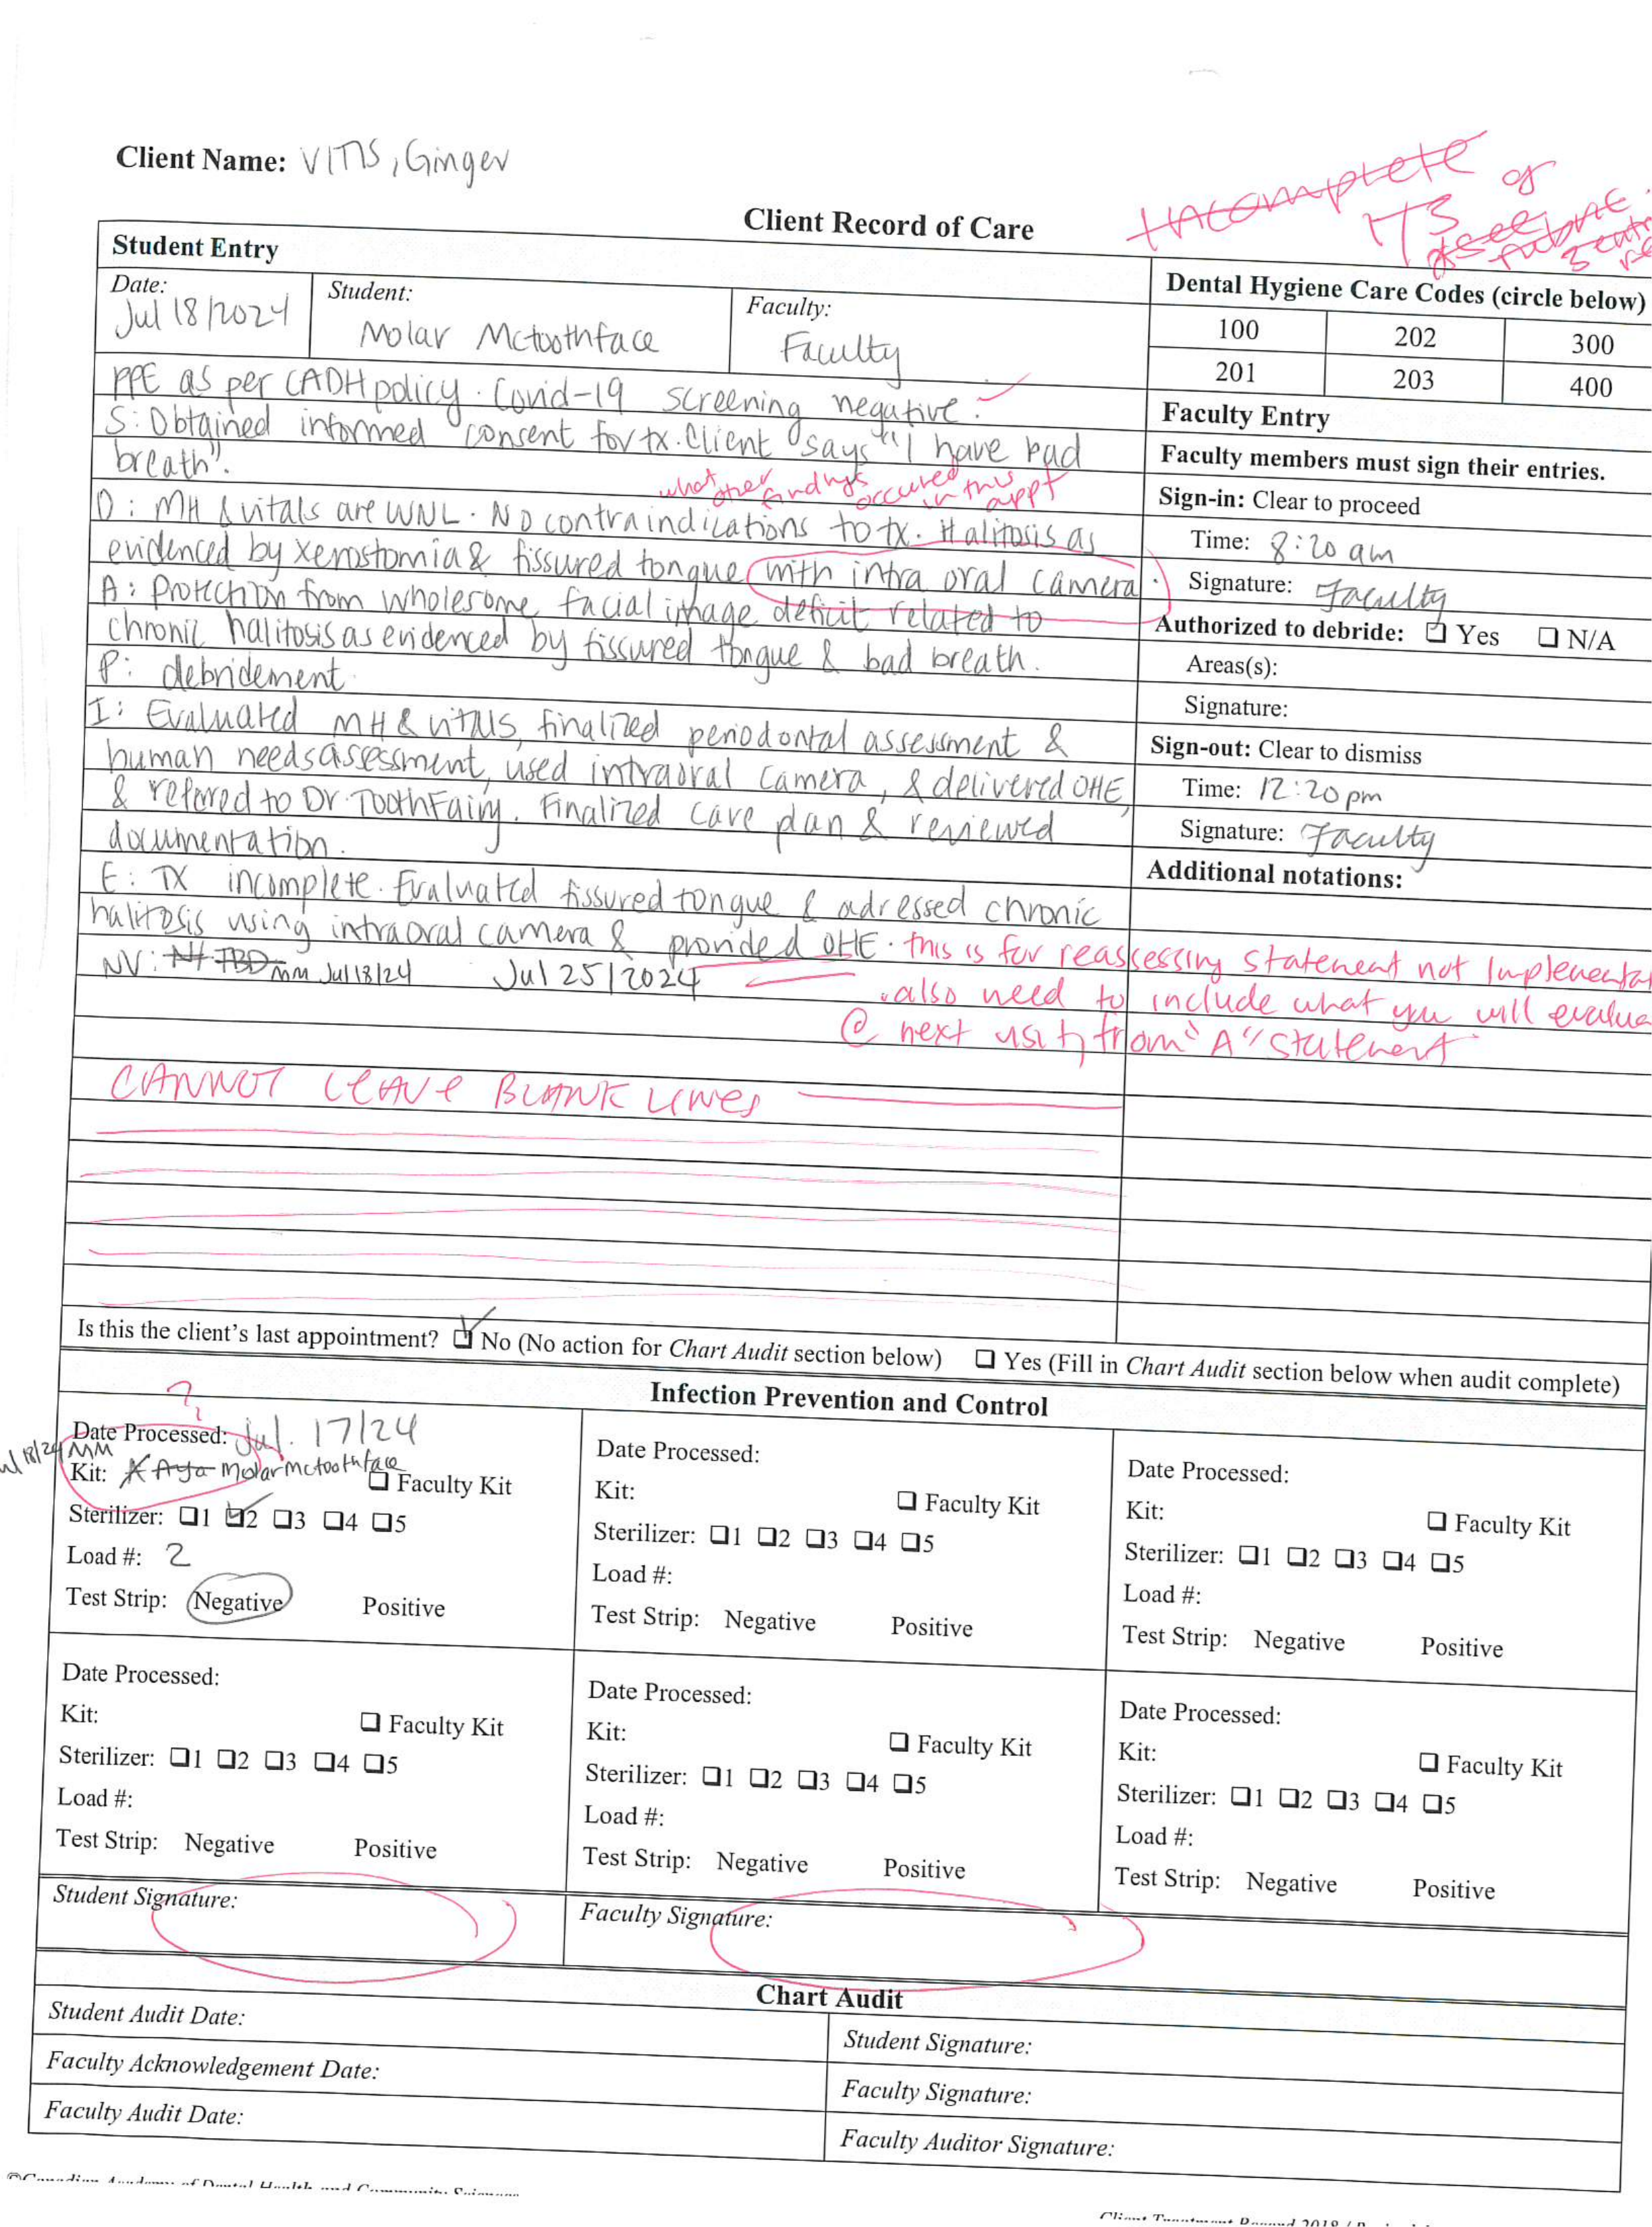 Client Name: VITIS, Ginger
Incomplete
of
Client Record of Care
Student Entry
Dental Hygiene Care Codes (circle below)
Date: Jul 18/2024
Student: Molar Mctoothface
Faculty: Faculty
100 202 300
201 203 400
PPE as per CADH policy. Covid-19 screening negative.
S: Obtained informed consent for tx. Client says "I have bad
breath".
what other findings occured in this appt
O: MH & vitals are WNL. No contraindications to tx. Halitosis as
evidenced by xerostomia & fissured tongue with intra oral camera.
A: Protection from wholesome facial image deficit related to
chronic halitosis as evidenced by fissured tongue & bad breath.
P: debridement.
I: Evaluated MH & vitals, finalized periodontal assessment &
human needs assessment, used intraoral camera, & delivered OHE,
& refered to Dr. ToothFairy. Finalized care plan & reviewed
documentation.
E: TX incomplete. Evaluated fissured tongue & adressed chronic
halitosis using intraoral camera & provided OHE. this is for reassessing statement not
NV: TBD mm Jul 18/24 Jul 25/2024
.also need to include what you will
@ next visit from "A" statement
CANNOT LEAVE BLANK LINES
Faculty Entry
Faculty members must sign their entries.
Sign-in: Clear to proceed
Time: 8:20 am
Signature: Faculty
Authorized to debride: ❑ Yes ❑ N/A
Areas(s):
Signature:
Sign-out: Clear to dismiss
Time: 12:20 pm
Signature: Faculty
Additional notations:
Is this the client's last appointment? ❑ No (No action for Chart Audit section below) ❑ Yes (Fill in Chart Audit section below when audit complete)
Infection Prevention and Control
?
Date Processed: Jul. 17/24
18/24 MM
Kit: Molar Mctoothface ❑ Faculty Kit
Sterilizer: ❑1 ❑2 ❑3 ❑4 ❑5
Load #: 2
Test Strip: Negative Positive
Date Processed:
Kit: ❑ Faculty Kit
Sterilizer: ❑1 ❑2 ❑3 ❑4 ❑5
Load #:
Test Strip: Negative Positive
Date Processed:
Kit: ❑ Faculty Kit
Sterilizer: ❑1 ❑2 ❑3 ❑4 ❑5
Load #:
Test Strip: Negative Positive
Date Processed:
Kit: ❑ Faculty Kit
Sterilizer: ❑1 ❑2 ❑3 ❑4 ❑5
Load #:
Test Strip: Negative Positive
Date Processed:
Kit: ❑ Faculty Kit
Sterilizer: ❑1 ❑2 ❑3 ❑4 ❑5
Load #:
Test Strip: Negative Positive
Date Processed:
Kit: ❑ Faculty Kit
Sterilizer: ❑1 ❑2 ❑3 ❑4 ❑5
Load #:
Test Strip: Negative Positive
Student Signature:
Faculty Signature:
Chart Audit
Student Audit Date:
Student Signature:
Faculty Acknowledgement Date:
Faculty Signature:
Faculty Audit Date:
Faculty Auditor Signature: